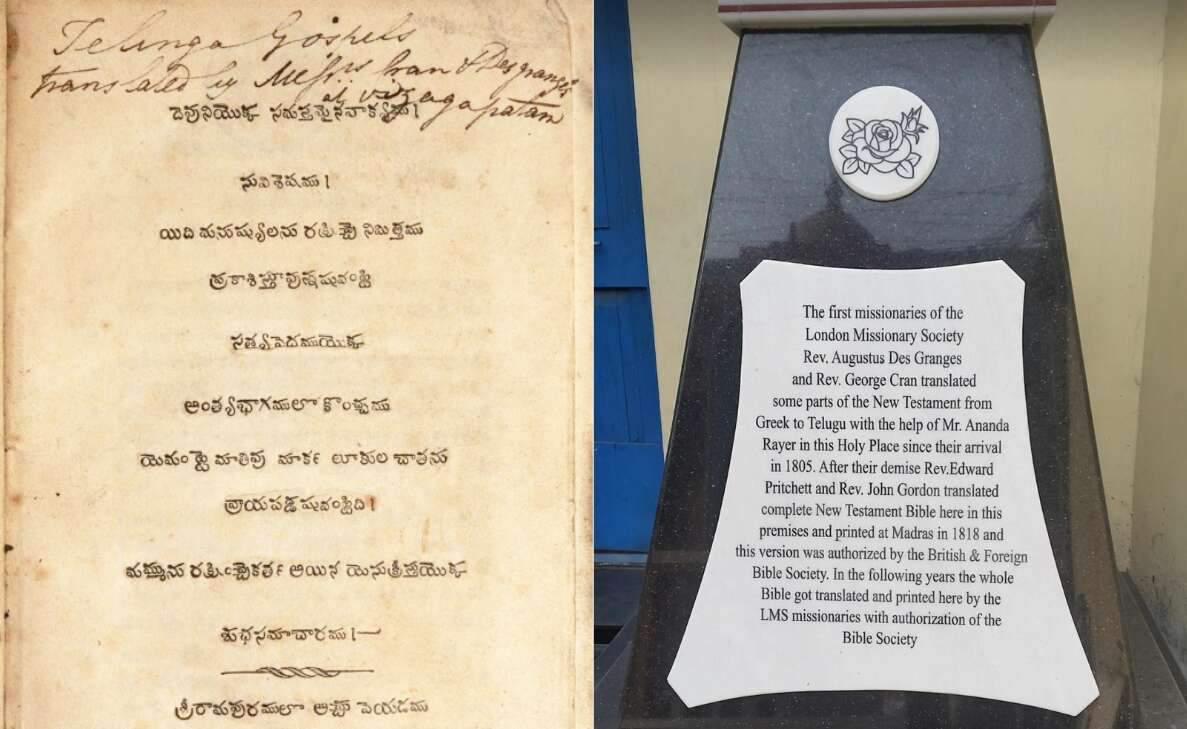 Telinga Gospels
translated by Messrs Cran & Desgranges
at vizagapatam
దెవునియొక్క సమస్తమైనవాక్యము।
సువిశెషము।
యిది మనుష్యులను నిమిత్తము
సత్యవెదముయొక్క
అంత్యభాగములొ కొంచ్చము
మాతివు మార్క లూకుల చాతను
వ్రాయపడ్డషువంట్టిది।
మమ్మును అయిన యెసుక్రీస్తుయొక్క
శుభసమాచారము।
శ్రీరామపురములొ అచ్చు వెయడము
The first missionaries of the
London Missionary Society
Rev. Augustus Des Granges
and Rev. George Cran translated
some parts of the New Testament from
Greek to Telugu with the help of Mr. Ananda
Rayer in this Holy Place since their arrival
in 1805. After their demise Rev.Edward
Pritchett and Rev. John Gordon translated
complete New Testament Bible here in this
premises and printed at Madras in 1818 and
this version was authorized by the British & Foreign
Bible Society. In the following years the whole
Bible got translated and printed here by the
LMS missionaries with authorization of the
Bible Society